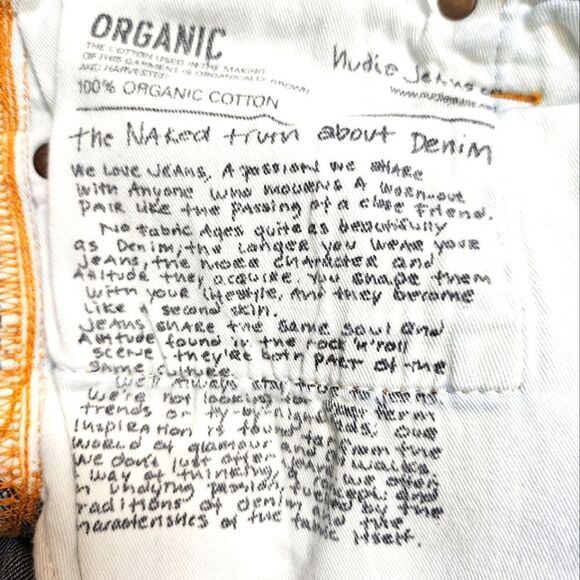 ORGANIC
THE COTTON USED IN THE MAKING
OF THIS GARMENT IS ORGANICALLY GROWN
AND HARVESTED
100% ORGANIC COTTON
Nudie Jeans co
www.nudiejeans.com
the NAKED truth about Denim
WE LOVE JEANS, A PASSION WE SHARE
WITH ANYONE WHO MOURNS A WORN-OUT
PAIR LIKE the PASSING of a close friend.
No fabric Ages quite as beautifully
as Denim, the Longer you WEAR your
JEANS, the MORE CHARACTER and
Attitude they acquire. You shape them
With your lifestyle, And they become
Like second skin.
JEANS SHARE the same soul and
Attitude found in the rock'n'roll
scene they're both PART of the
same culture.
We'll Always stay true to
We're not looking for
trends or
Inspiration is from the
World of glamour
We don't just offer
way of thinking,
undying passion,
traditions of denim and the
characteristics of the fabric itself.